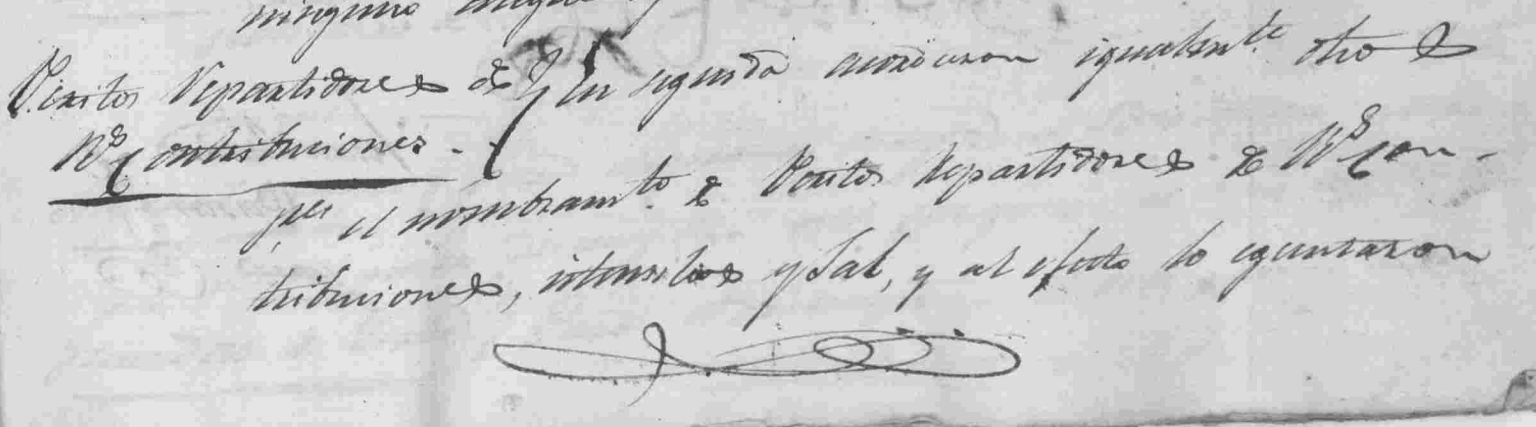 ninguno
Peritos Repartidores de
Rs. Contribuciones.
En seguida acordaron igualmte. otro s
pr. el nombramto. de Peritos Repartidores de Rs. Con-
tribuciones, utensilios y Sal, y al efecto lo egecutaron